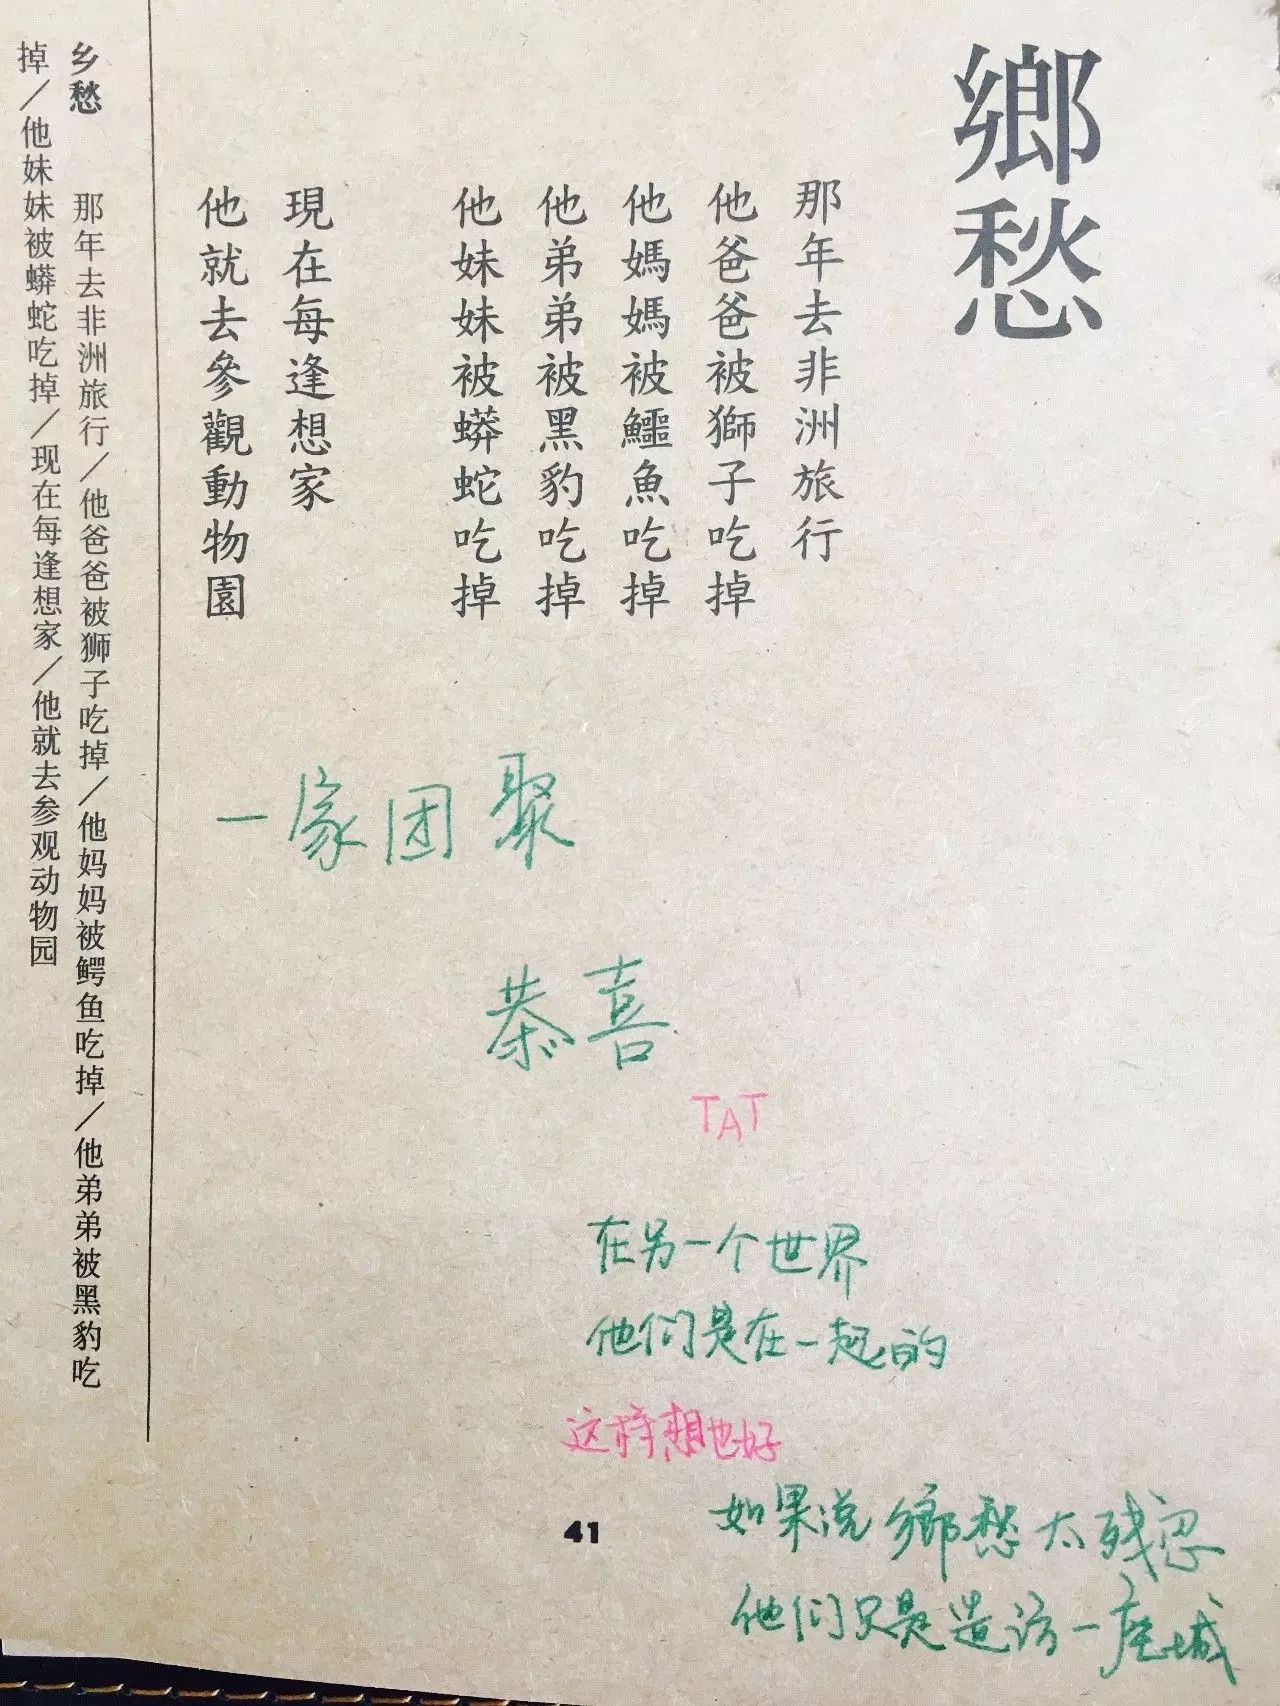 鄉愁
那年去非洲旅行
他爸爸被獅子吃掉
他媽媽被鱷魚吃掉
他弟弟被黑豹吃掉
他妹妹被蟒蛇吃掉
現在每逢想家
他就去參觀動物園
乡愁 那年去非洲旅行／他爸爸被狮子吃掉／他妈妈被鳄鱼吃掉／他弟弟被黑豹吃
掉／他妹妹被蟒蛇吃掉／现在每逢想家／他就去参观动物园
一家团聚
恭喜
TAT
在另一个世界
他们是在一起的
这样想也好
如果说鄉愁太残忍
他们只是造访一座城
41